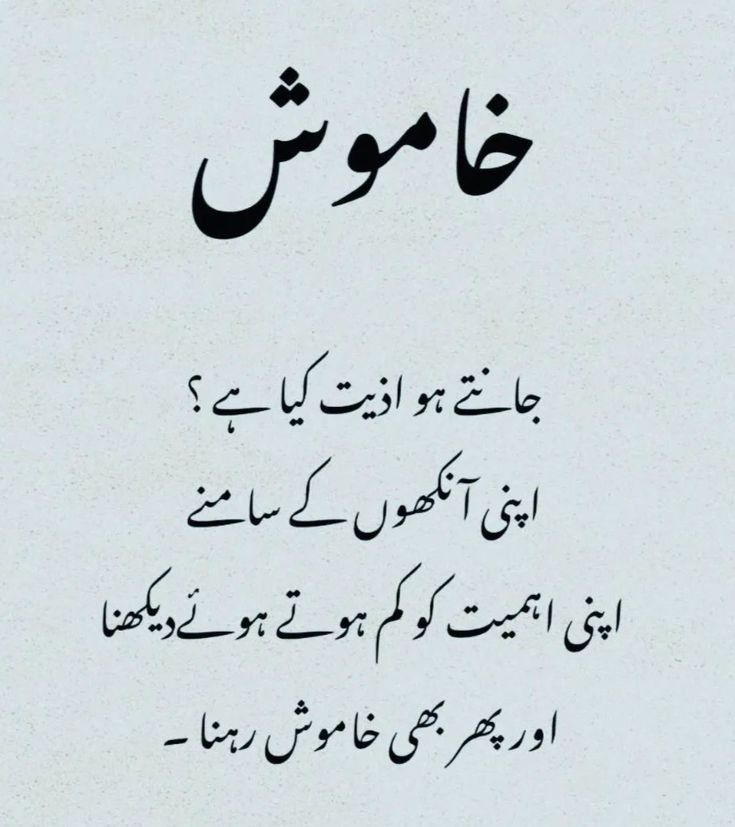 خاموش
جانتے ہو اذیت کیا ہے ؟
اپنی آنکھوں کے سامنے
اپنی اہمیت کو کم ہوتے ہوئے دیکھنا
اور پھر بھی خاموش رہنا ۔